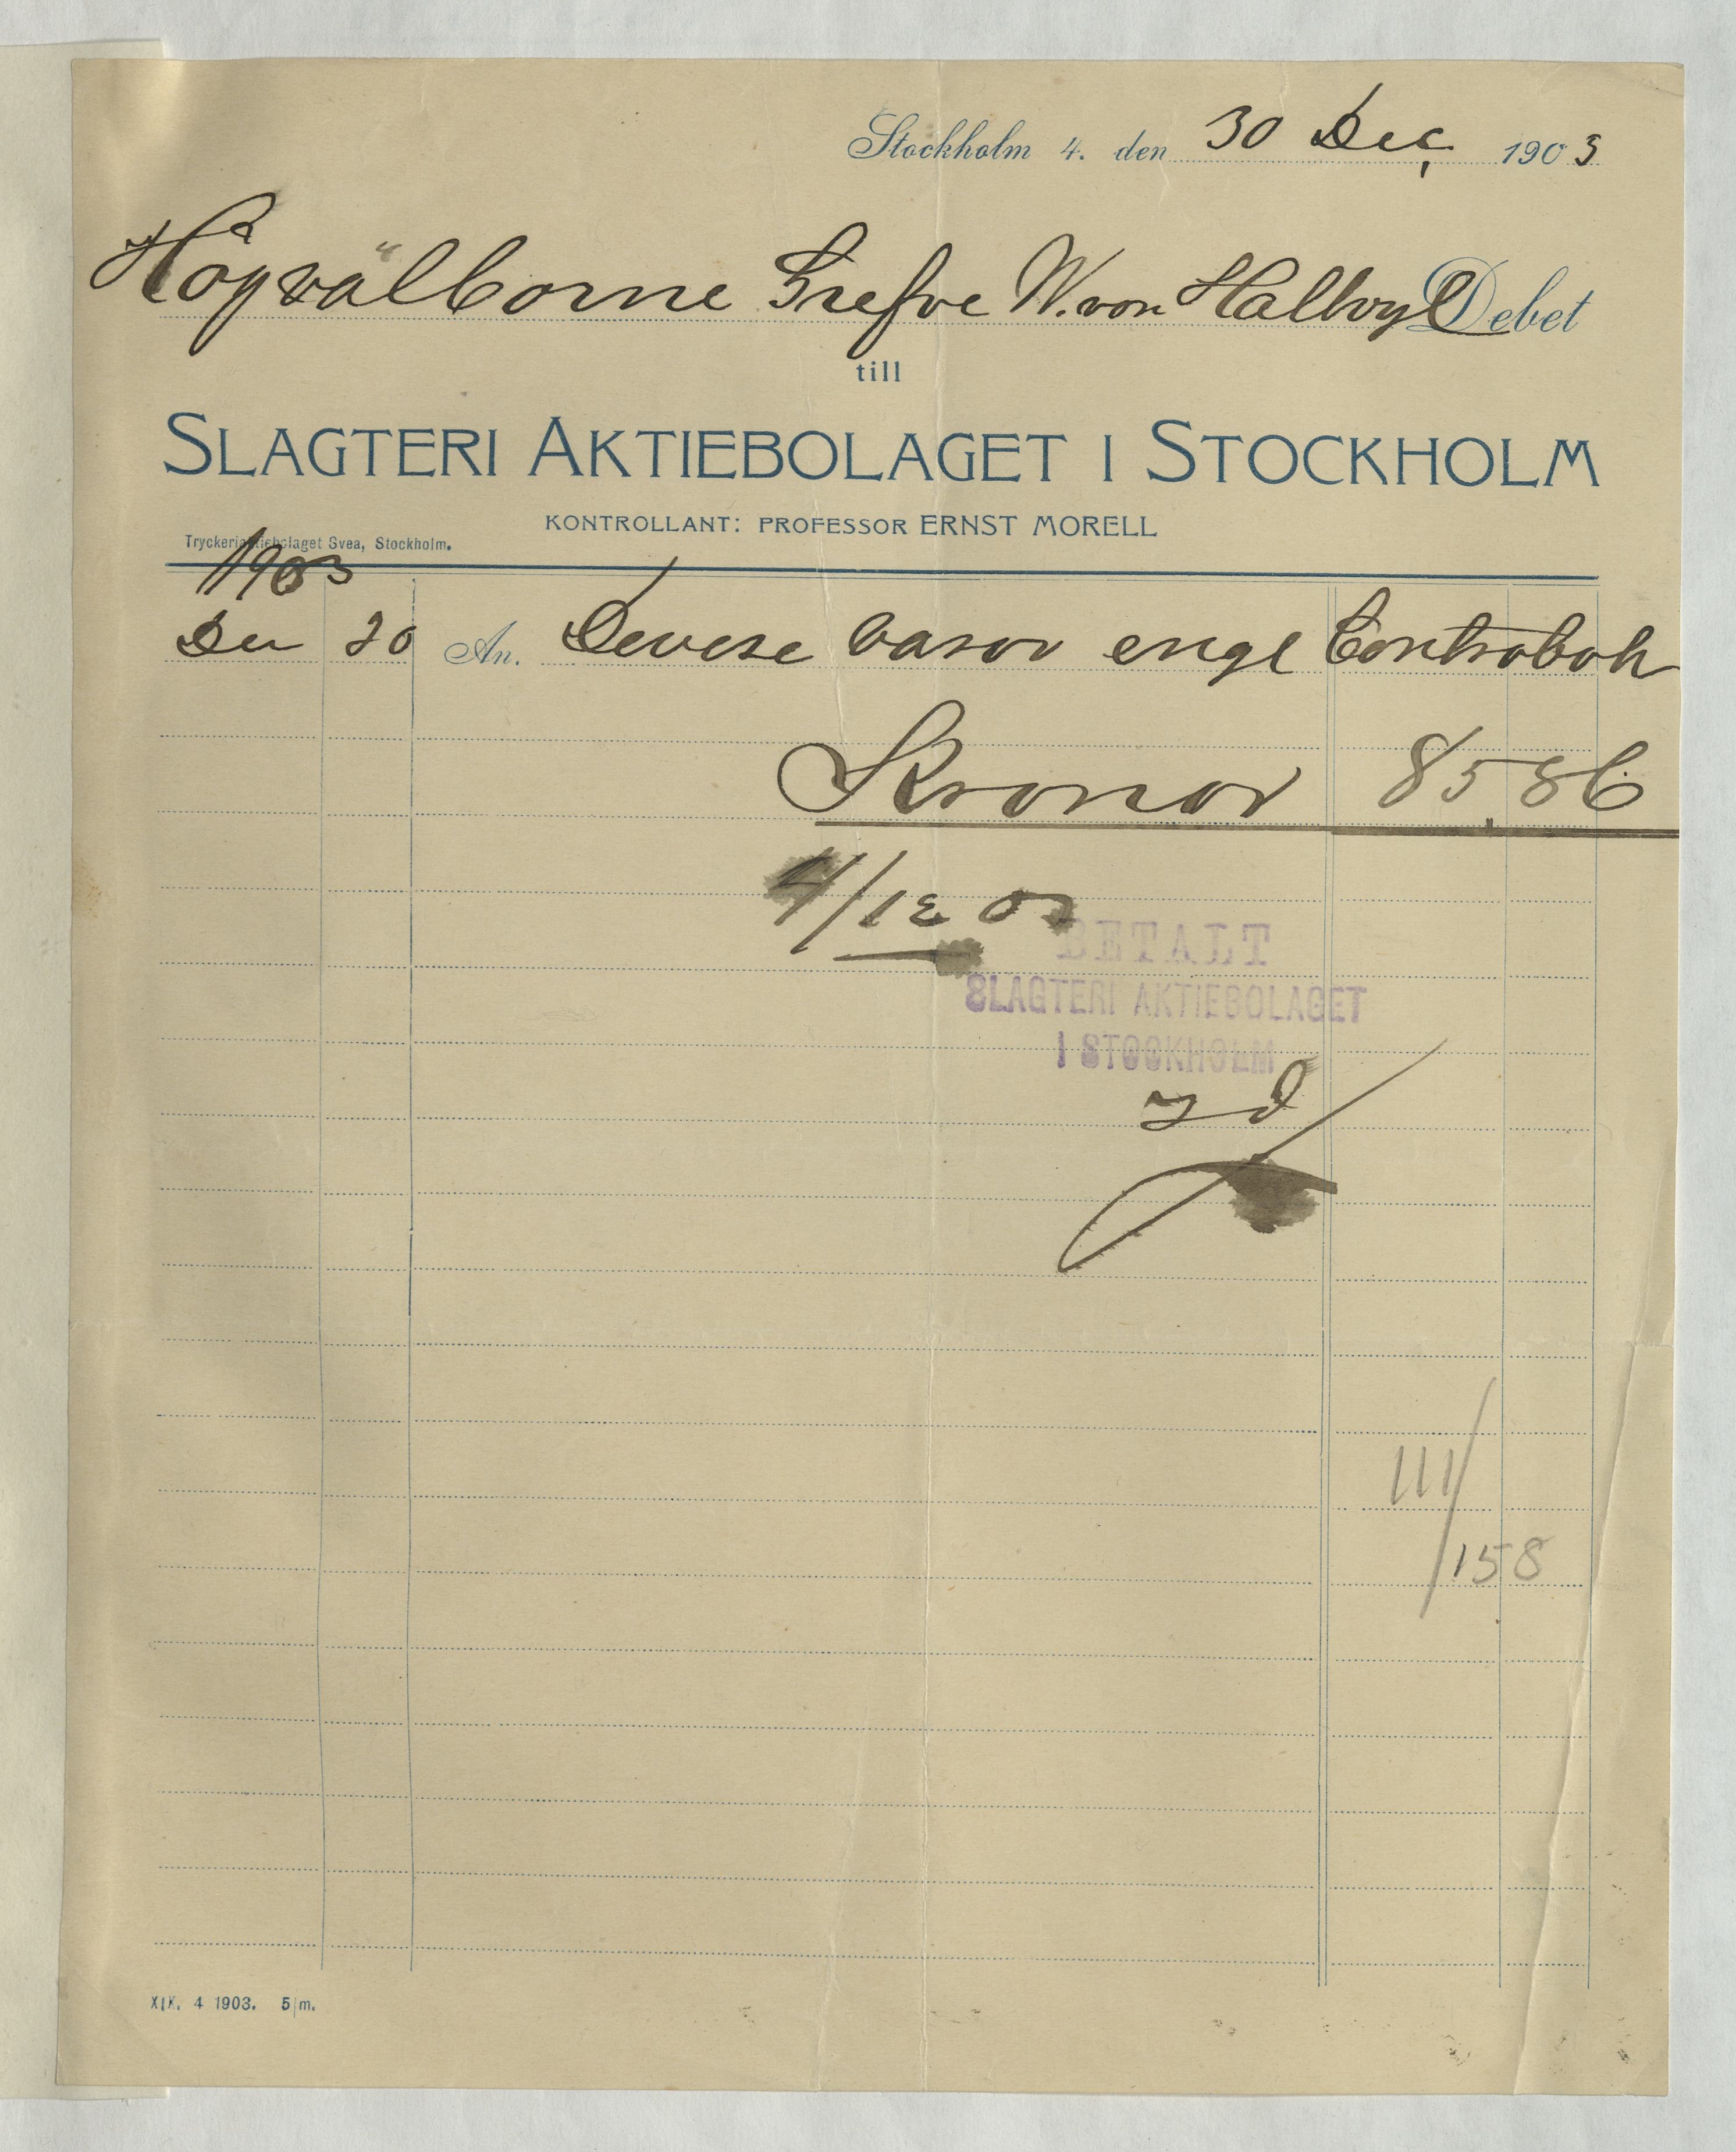 Stockholm 4. den 30 Dec 1903
Högvälborne Grefve W. von Hallwyl Debet
till
SLAGTERI AKTIEBOLAGET I STOCKHOLM
KONTROLLANT: PROFESSOR ERNST MORELL
Tryckeriaktiebolaget Svea, Stockholm.
1903
Dec 30 An. Diverse varor engl Contrabok
Kronor 85,86
BETALT
SLAGTERI AKTIEBOLAGET
I STOCKHOLM
111/158
XIX. 4 1903. 5 m.